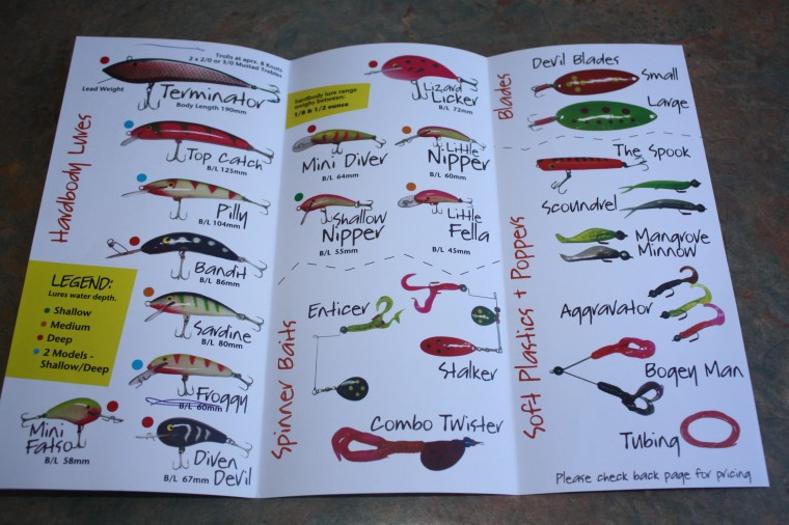 Trolls at aprx. 8 Knots
2 x 2/0 or 3/0 Mustad Trebles
Lead Weight
Terminator
Body Length 190mm
Hardbody Lures
Top Catch
B/L 125mm
Pilly
B/L 104mm
Bandit
B/L 86mm
LEGEND:
Lures water depth.
Shallow
Medium
Deep
2 Models -
Shallow/Deep
Sardine
B/L 80mm
Froggy
B/L 60mm
Mini
Fatso
B/L 58mm
Diven
Devil
B/L 67mm
hardbody lure range
weighs between:
1/8 & 1/2 ounce
Lizard
Licker
B/L 72mm
Mini Diver
B/L 64mm
Little
Nipper
B/L 60mm
Shallow
Nipper
B/L 55mm
Little
Fella
B/L 45mm
Spinner Baits
Enticer
Stalker
Combo Twister
Blades
Devil Blades
Small
Large
Soft Plastics + Poppers
The Spook
Scoundrel
Mangrove
Minnow
Aggravator
Bogey Man
Tubing
Please check back page for pricing